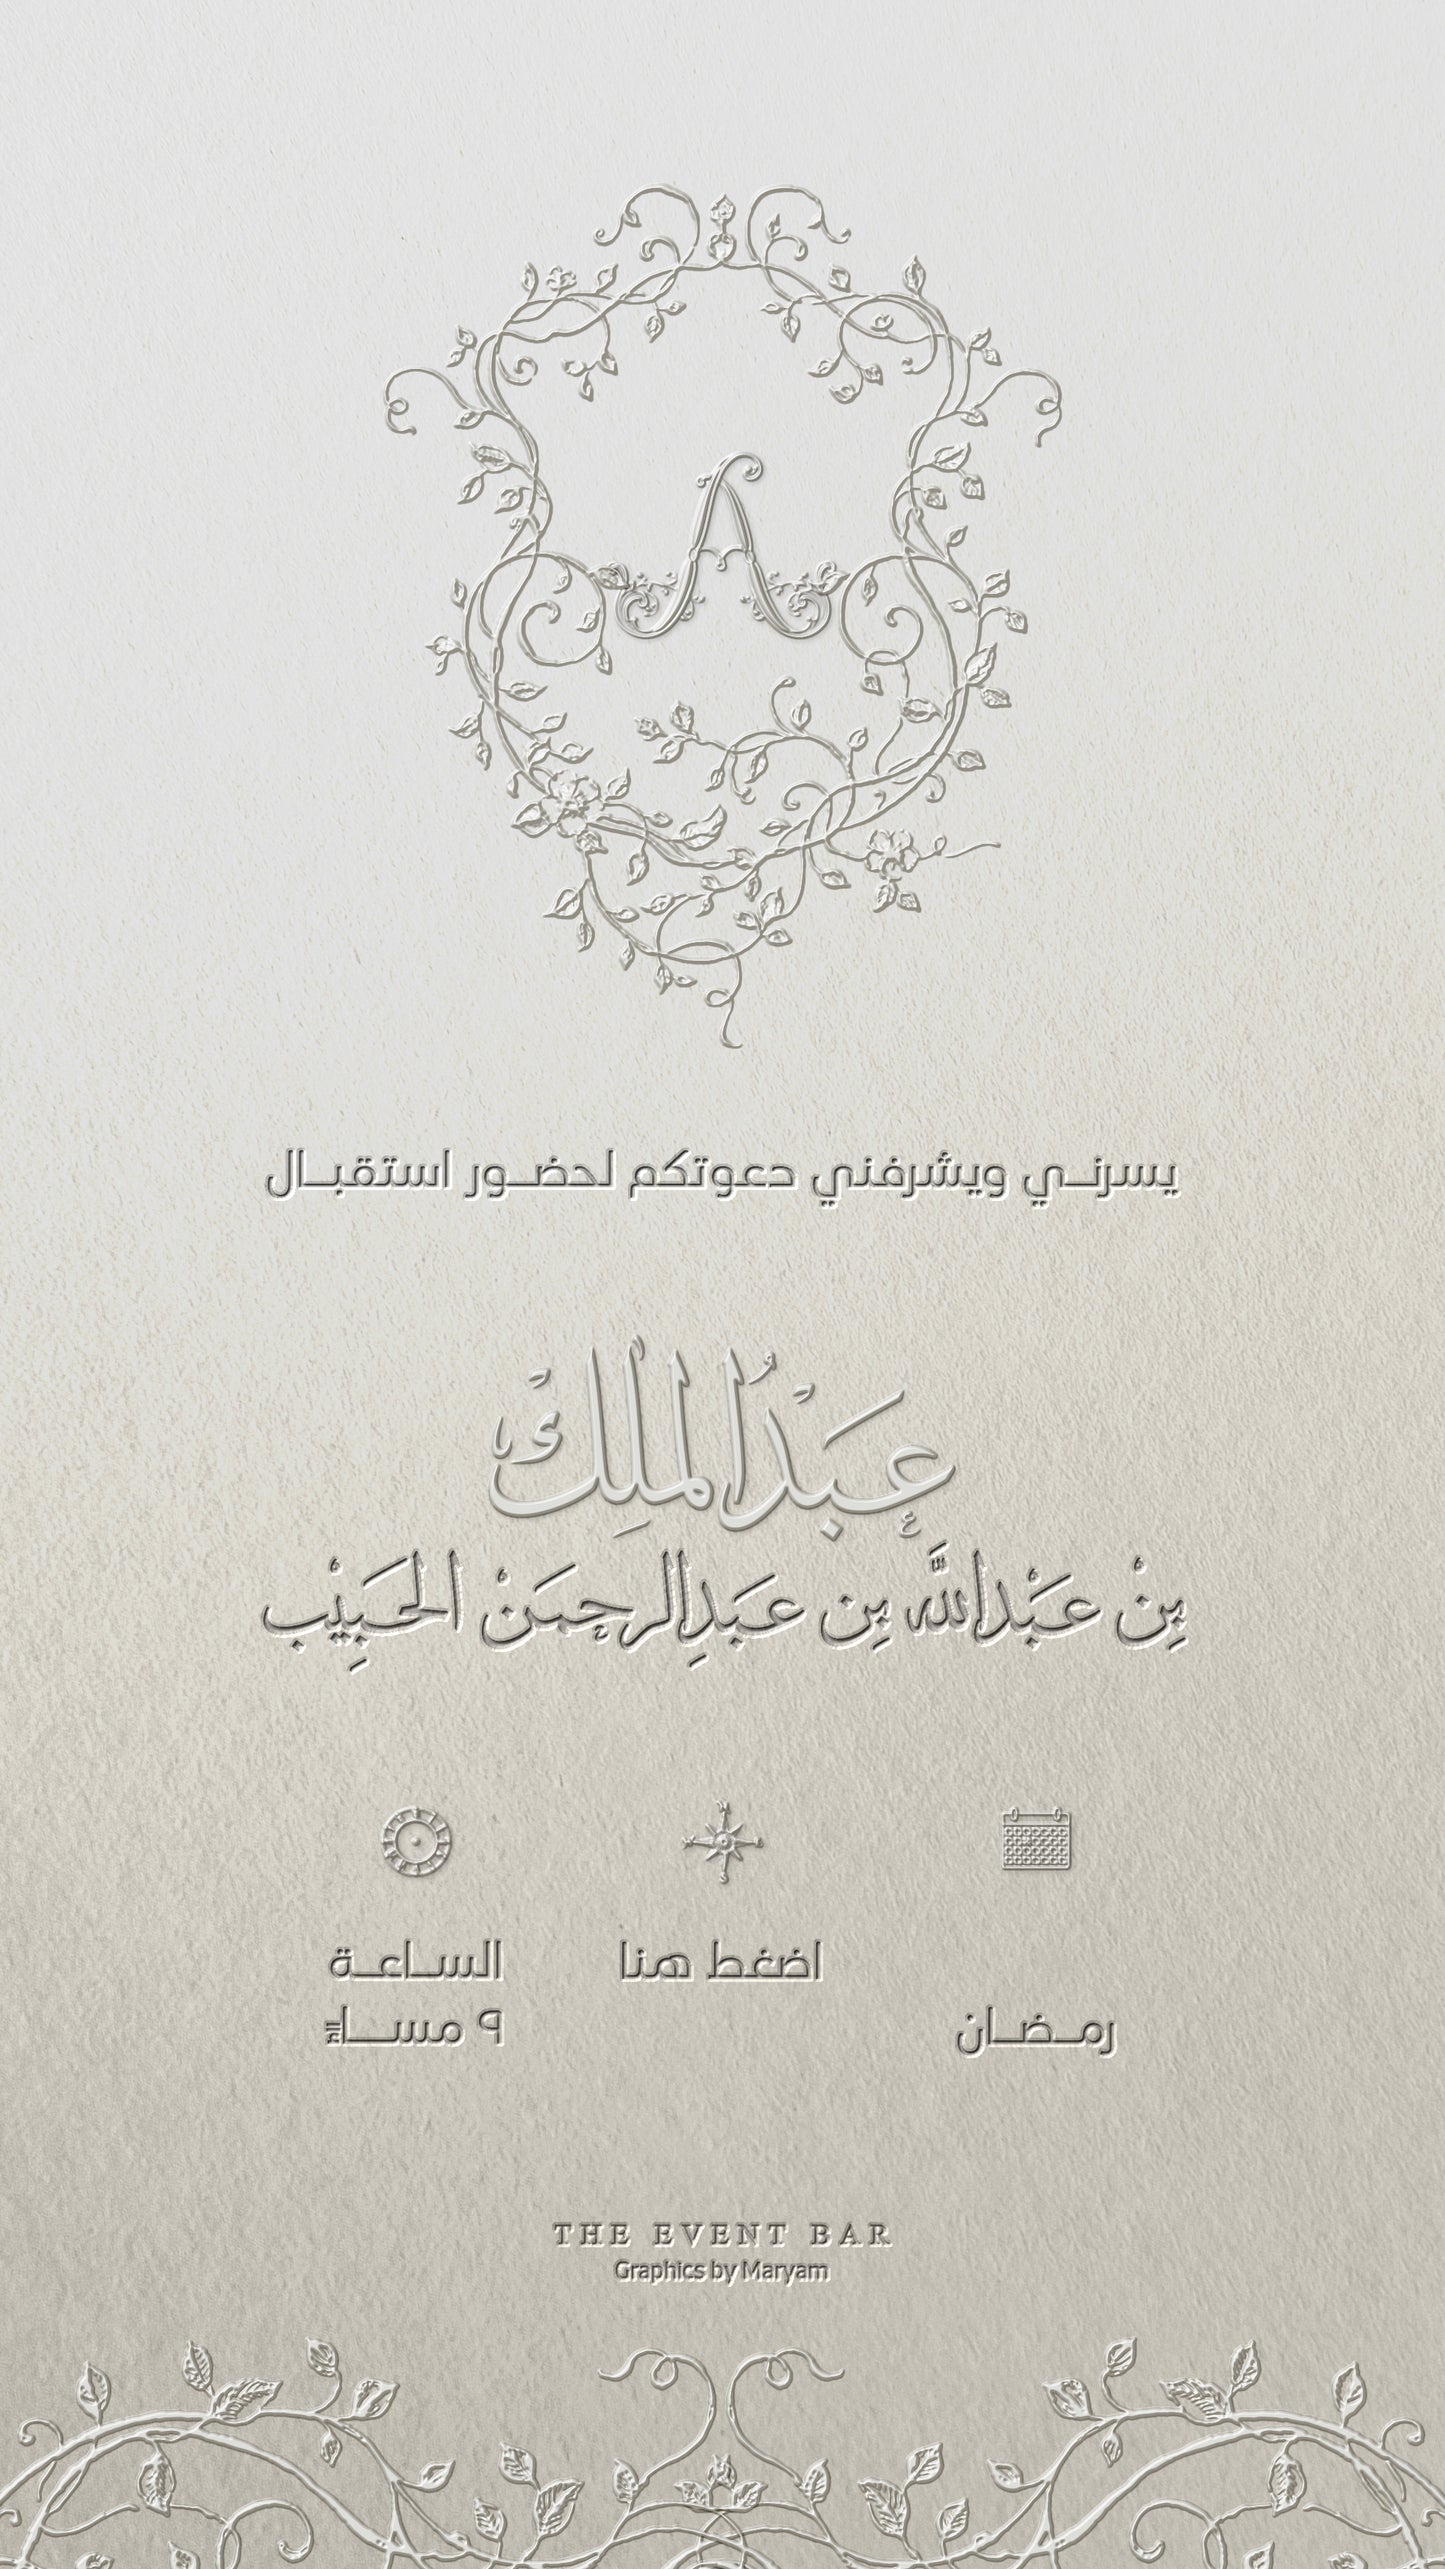 A
يسرني ويشرفني دعوتكم لحضور استقبال
عَبْدُالملِك
بِنْ عَبْدالله بِن عَبدِالرحمَنْ الحَبِيْب
اضغط هنا
الساعة
رمضان
٩ مساءً
THE EVENT BAR
Graphics by Maryam